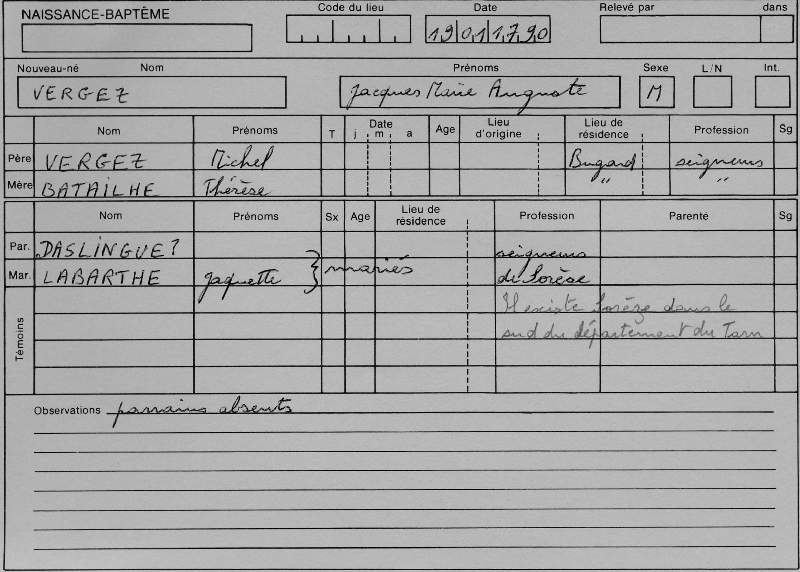 NAISSANCE-BAPTÊME
Code du lieu
Date
19011790
Relevé par
dans
Nouveau-né Nom
VERGEZ
Prénoms
Jacques Marie Auguste
Sexe
M
L/N
Int.
Nom Prénoms T Date j m a Age Lieu d'origine Lieu de résidence Profession Sg
Père VERGEZ Michel Bugard seigneurs
Mère BATAILHE Thérèse " "
Nom Prénoms Sx Age Lieu de résidence Profession Parenté Sg
Par. DASLINGUE? seigneurs
Mar. LABARTHE Jaquette } mariés de Sorèse
Témoins
Il existe Sorèze dans le
sud du département du Tarn
Observations parrains absents